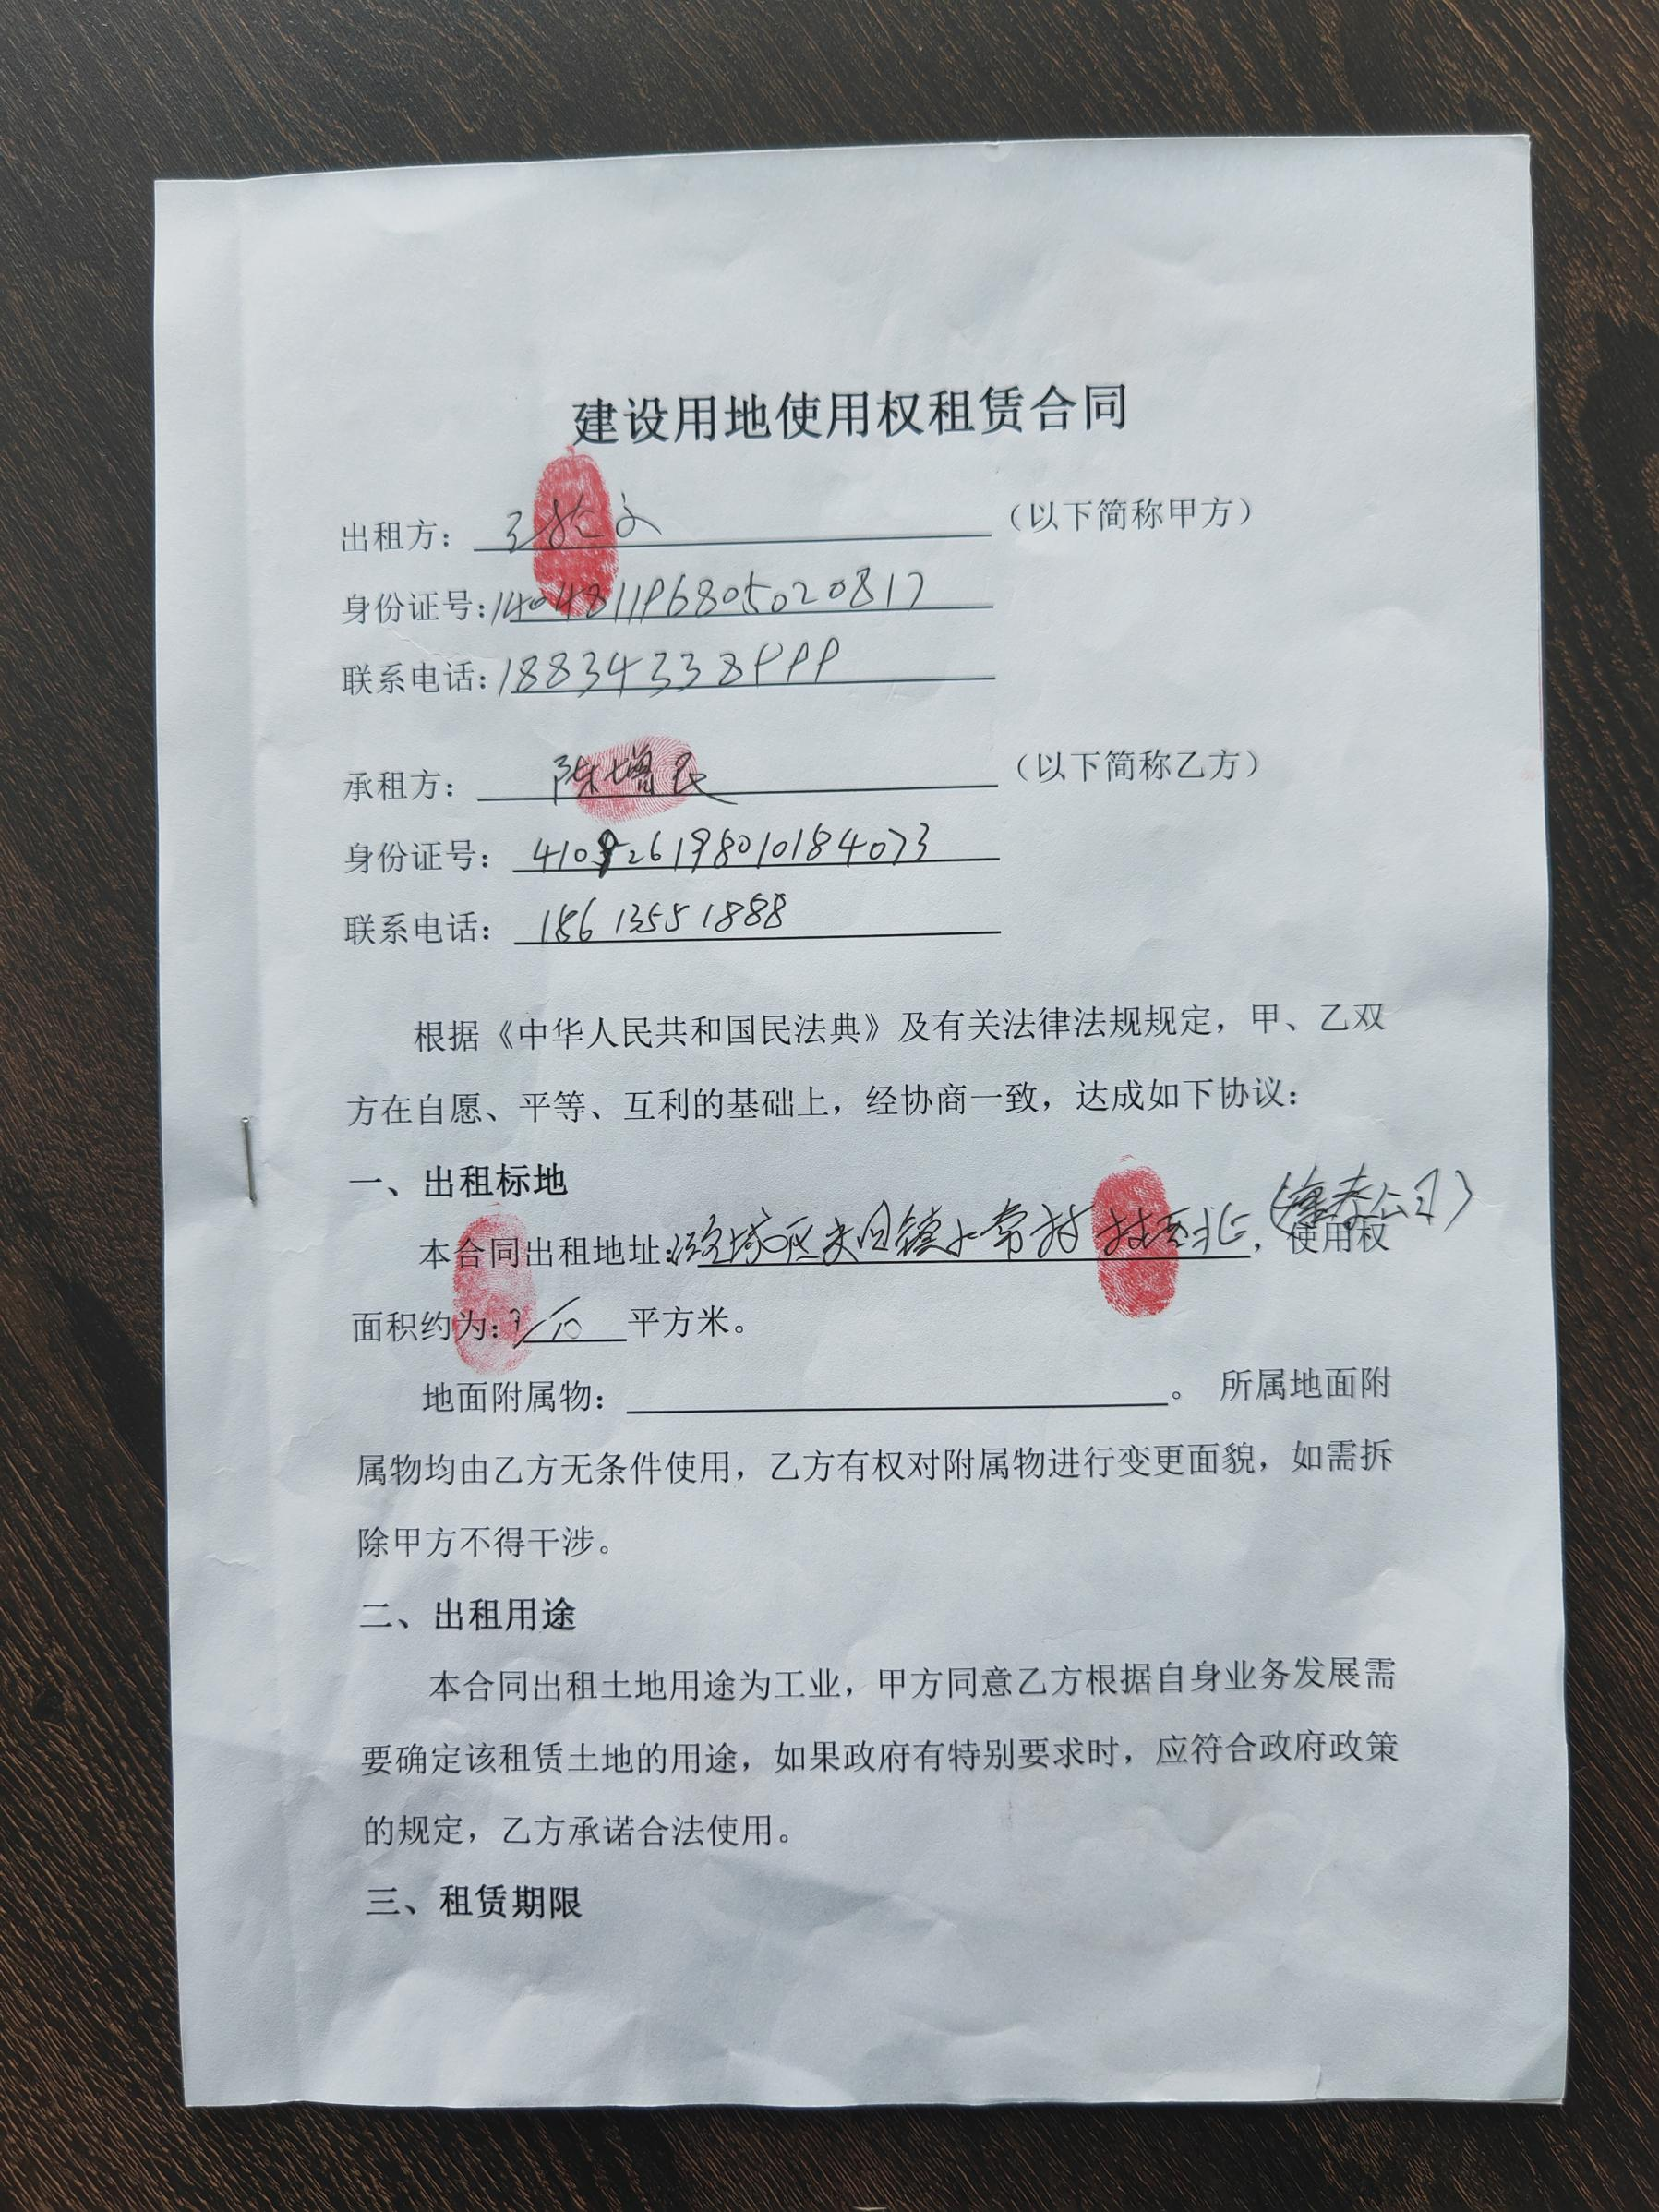 建设用地使用权租赁合同
出租方：（以下简称甲方）
身份证号：140481196805020817
联系电话：18834338999
承租方：陈增民（以下简称乙方）
身份证号：410926198010184073
联系电话：15613551888
根据《中华人民共和国民法典》及有关法律法规规定，甲、乙双
方在自愿、平等、互利的基础上，经协商一致，达成如下协议：
一、出租标地
本合同出租地址：潞城区 镇 村 北（ 公司），使用权
面积约为： 平方米。
地面附属物： 。所属地面附
属物均由乙方无条件使用，乙方有权对附属物进行变更面貌，如需拆
除甲方不得干涉。
二、出租用途
本合同出租土地用途为工业，甲方同意乙方根据自身业务发展需
要确定该租赁土地的用途，如果政府有特别要求时，应符合政府政策
的规定，乙方承诺合法使用。
三、租赁期限